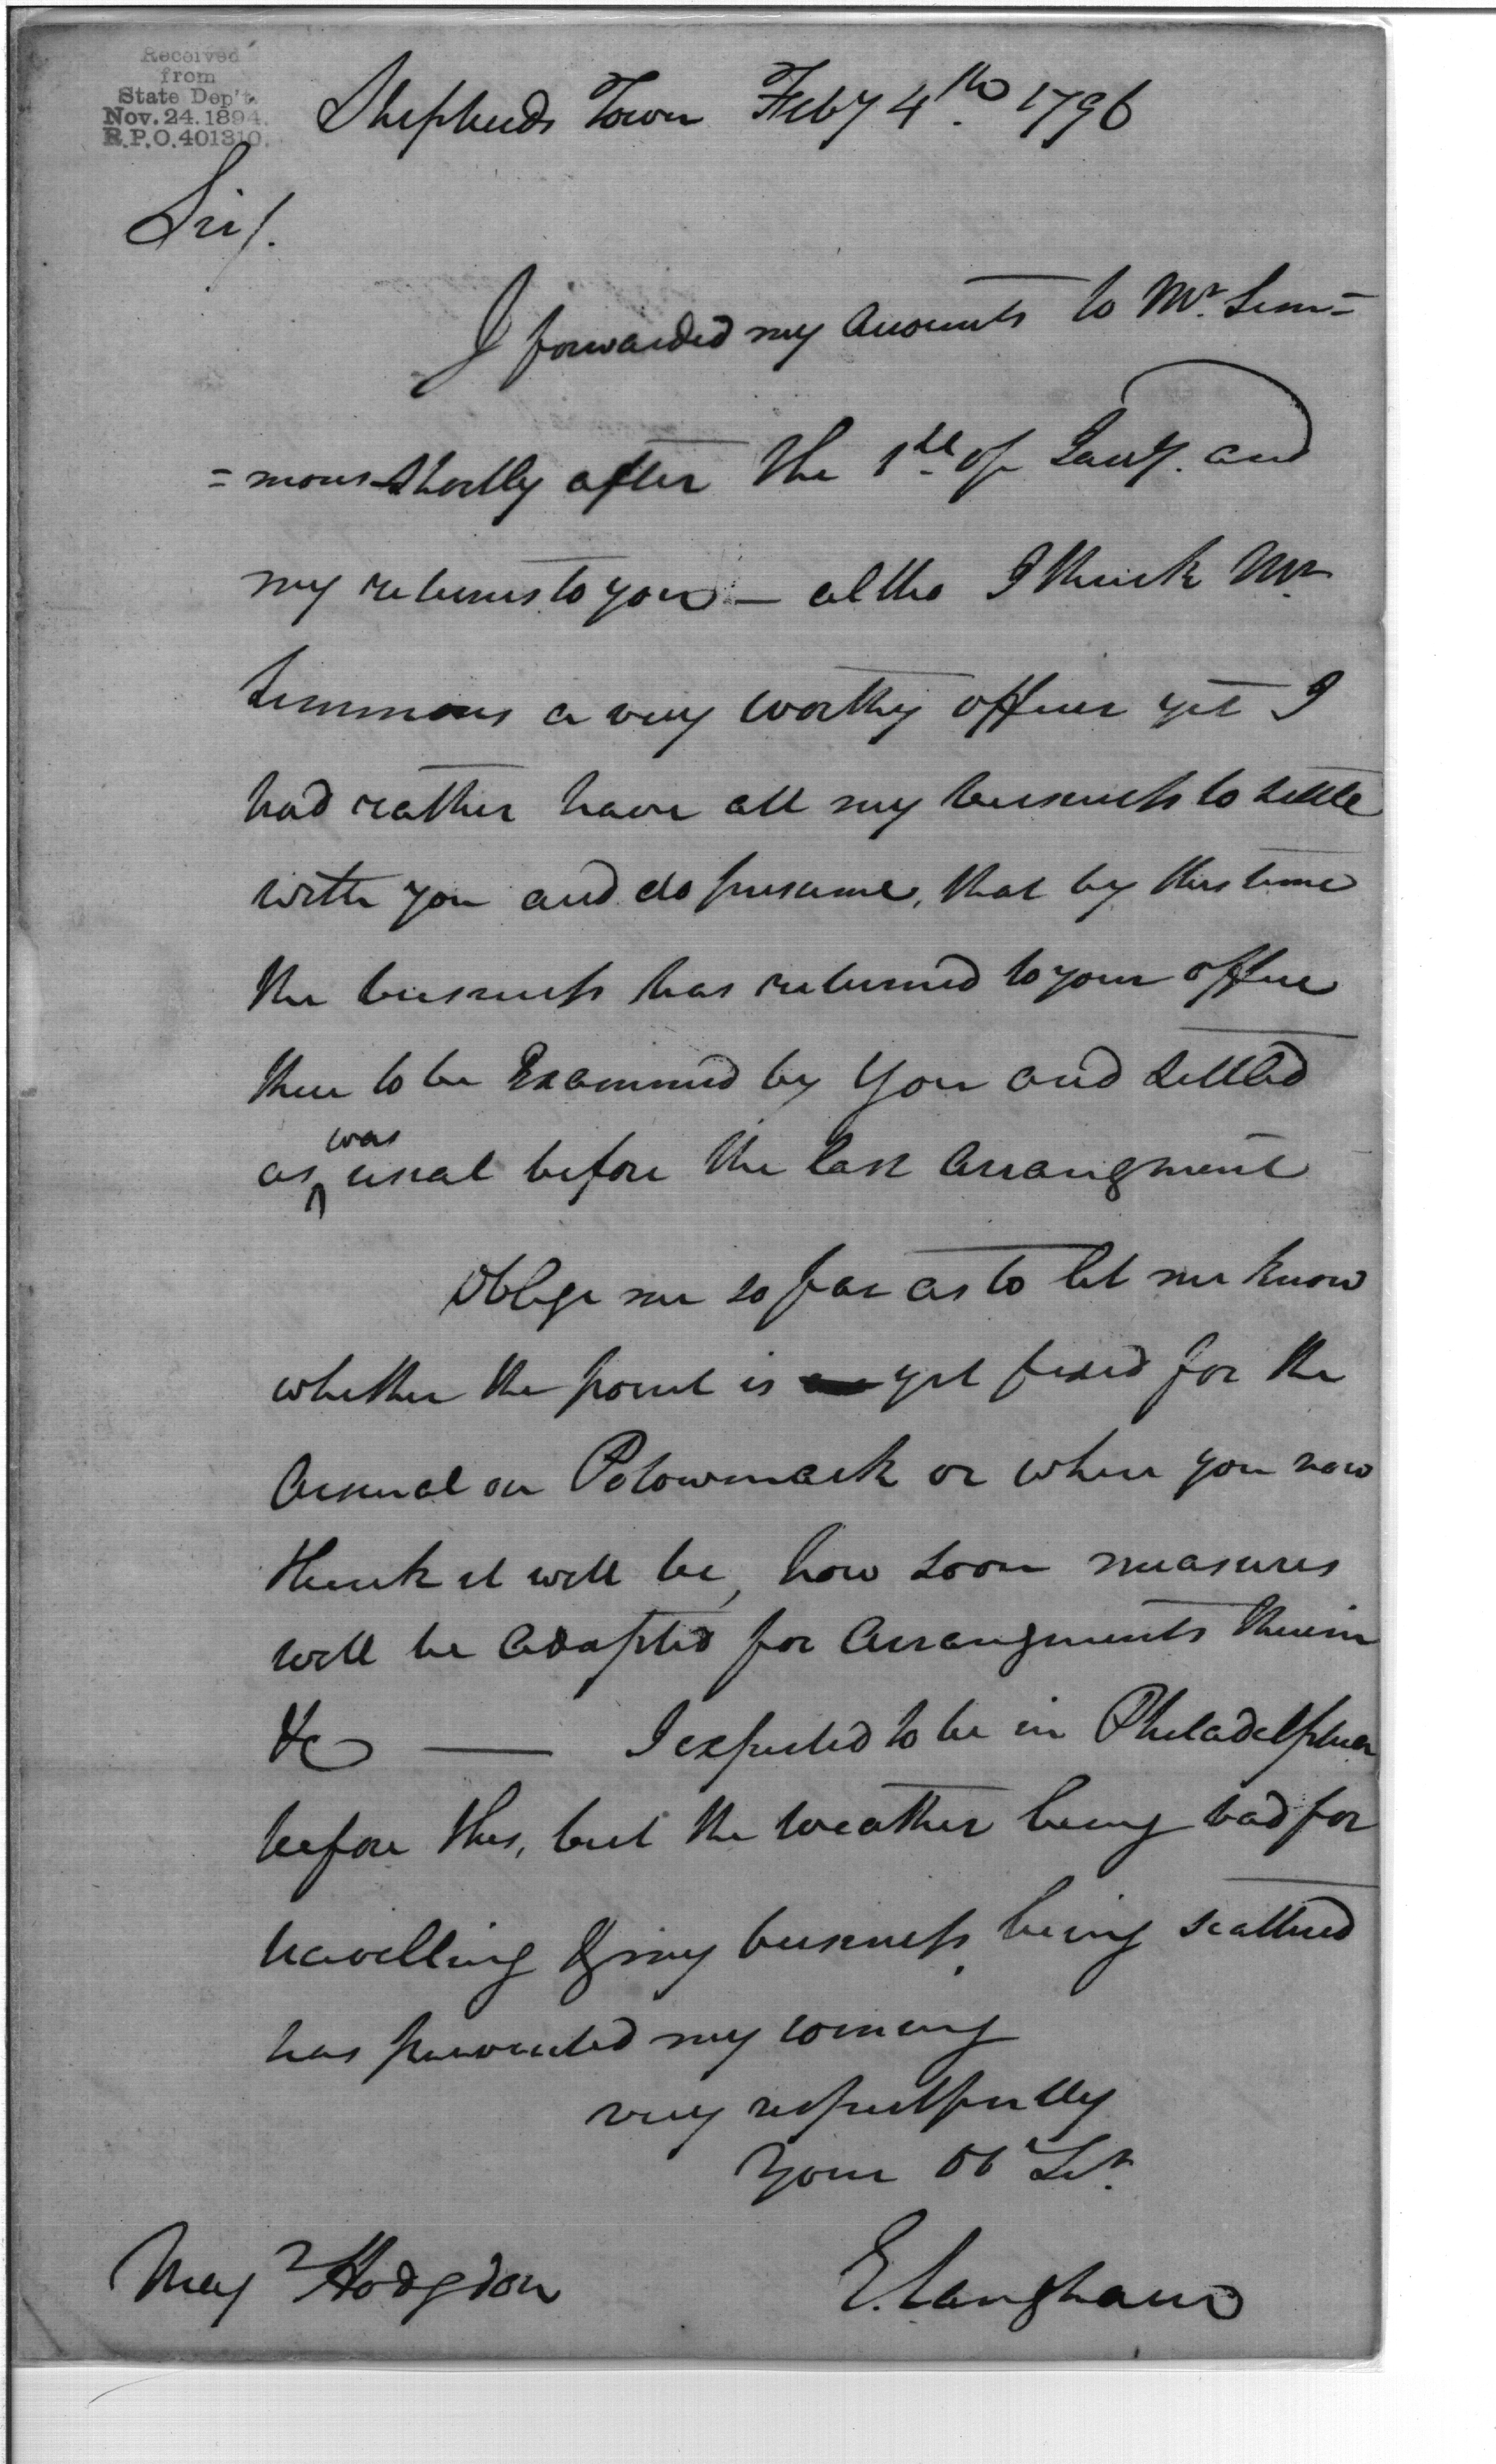 Received
from
State Dep't.
Nov. 24. 1894.
R.P.O. 401310.
Shepherds Town Feby 4th. 1796
Sir/.
I forwarded my Accounts to Mr. Sim=
=mons shortly after the 1st of Jany. and
my returns to you — altho I think Mr.
Simmons a very worthy officer yet I
had rather have all my business to settle
with you and do presume, that by this time
the business has returned to your office
there to be Examined by You and settled
was
as ^ usual before the last Arrangment
Oblige me so far as to let me know
whether the point is yet fixed for the
Arsenal on Potowmack or where you now
think it will be, how soon measures
will be adopted for Arrangments therein
&c — I expected to be in Philadelphia
before this, but the weather being bad for
travelling & my business being scattered
has prevented my coming
very respectfully
Your Ob Sert.
Majr Hodgdon
E. Langham